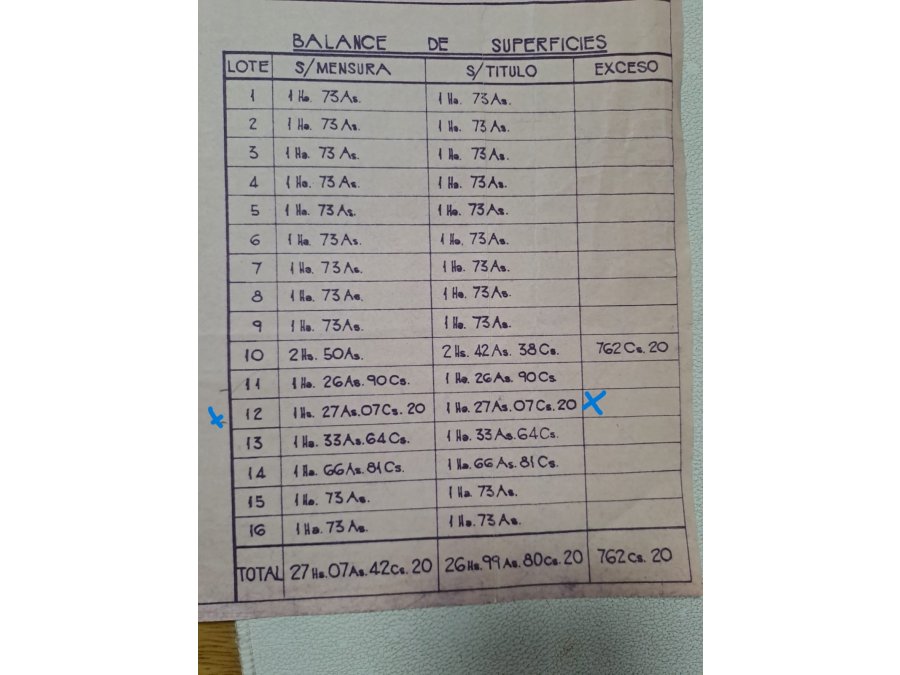 BALANCE DE SUPERFICIES
LOTE S/MENSURA S/TITULO EXCESO
1 1 Ha. 73 As. 1 Ha. 73 As.
2 1 Ha. 73 As. 1 Ha. 73 As.
3 1 Ha. 73 As. 1 Ha. 73 As.
4 1 Ha. 73 As. 1 Ha. 73 As.
5 1 Ha. 73 As. 1 Ha. 73 As.
6 1 Ha. 73 As. 1 Ha. 73 As.
7 1 Ha. 73 As. 1 Ha. 73 As.
8 1 Ha. 73 As. 1 Ha. 73 As.
9 1 Ha. 73 As. 1 Ha. 73 As.
10 2 Hs. 50 As. 2 Hs. 42 As. 38 Cs. 762 Cs. 20
11 1 Ha. 26 As. 90 Cs. 1 Ha. 26 As. 90 Cs
12 1 Ha. 27 As. 07 Cs. 20 1 Ha. 27 As. 07 Cs. 20
13 1 Ha. 33 As. 64 Cs. 1 Ha. 33 As. 64 Cs.
14 1 Ha. 66 As. 81 Cs. 1 Ha. 66 As. 81 Cs.
15 1 Ha. 73 As. 1 Ha. 73 As.
16 1 Ha. 73 As. 1 Ha. 73 As.
TOTAL 27 Hs. 07 As. 42 Cs. 20 26 Hs. 99 As. 80 Cs. 20 762 Cs. 20